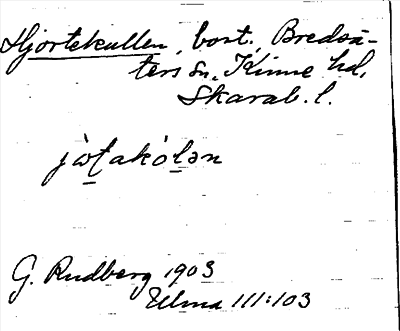 Hjortekullen, bost., Bredsä-
ters sn, Kinne hd,
Skarab. l.
jòṯakóḻən
G. Rudberg 1903
Ulma 111:103